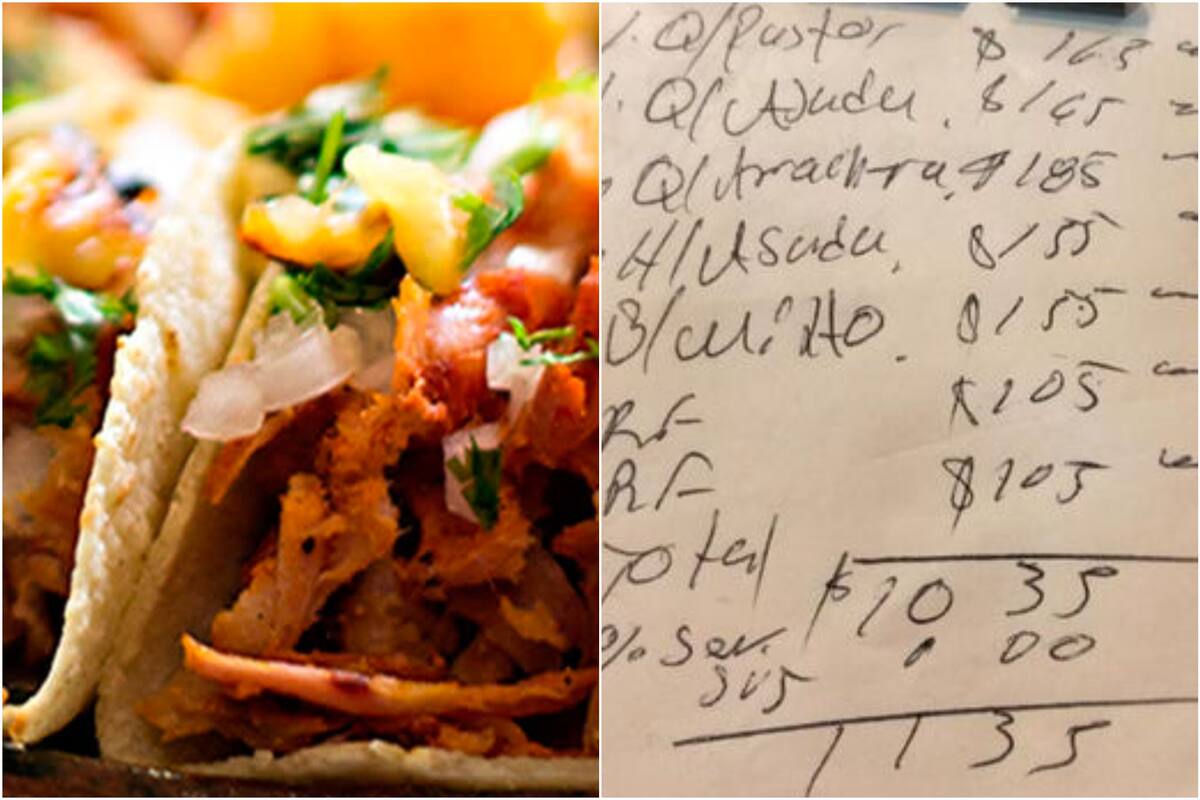 1. Q/Pastor $ 165
1. Q/Asada. $165
Q/Arrachera, $185
H/Asada, $155
B/urrito. $155
RF $105
RF $105
Total $1035
% Ser. 00
1135